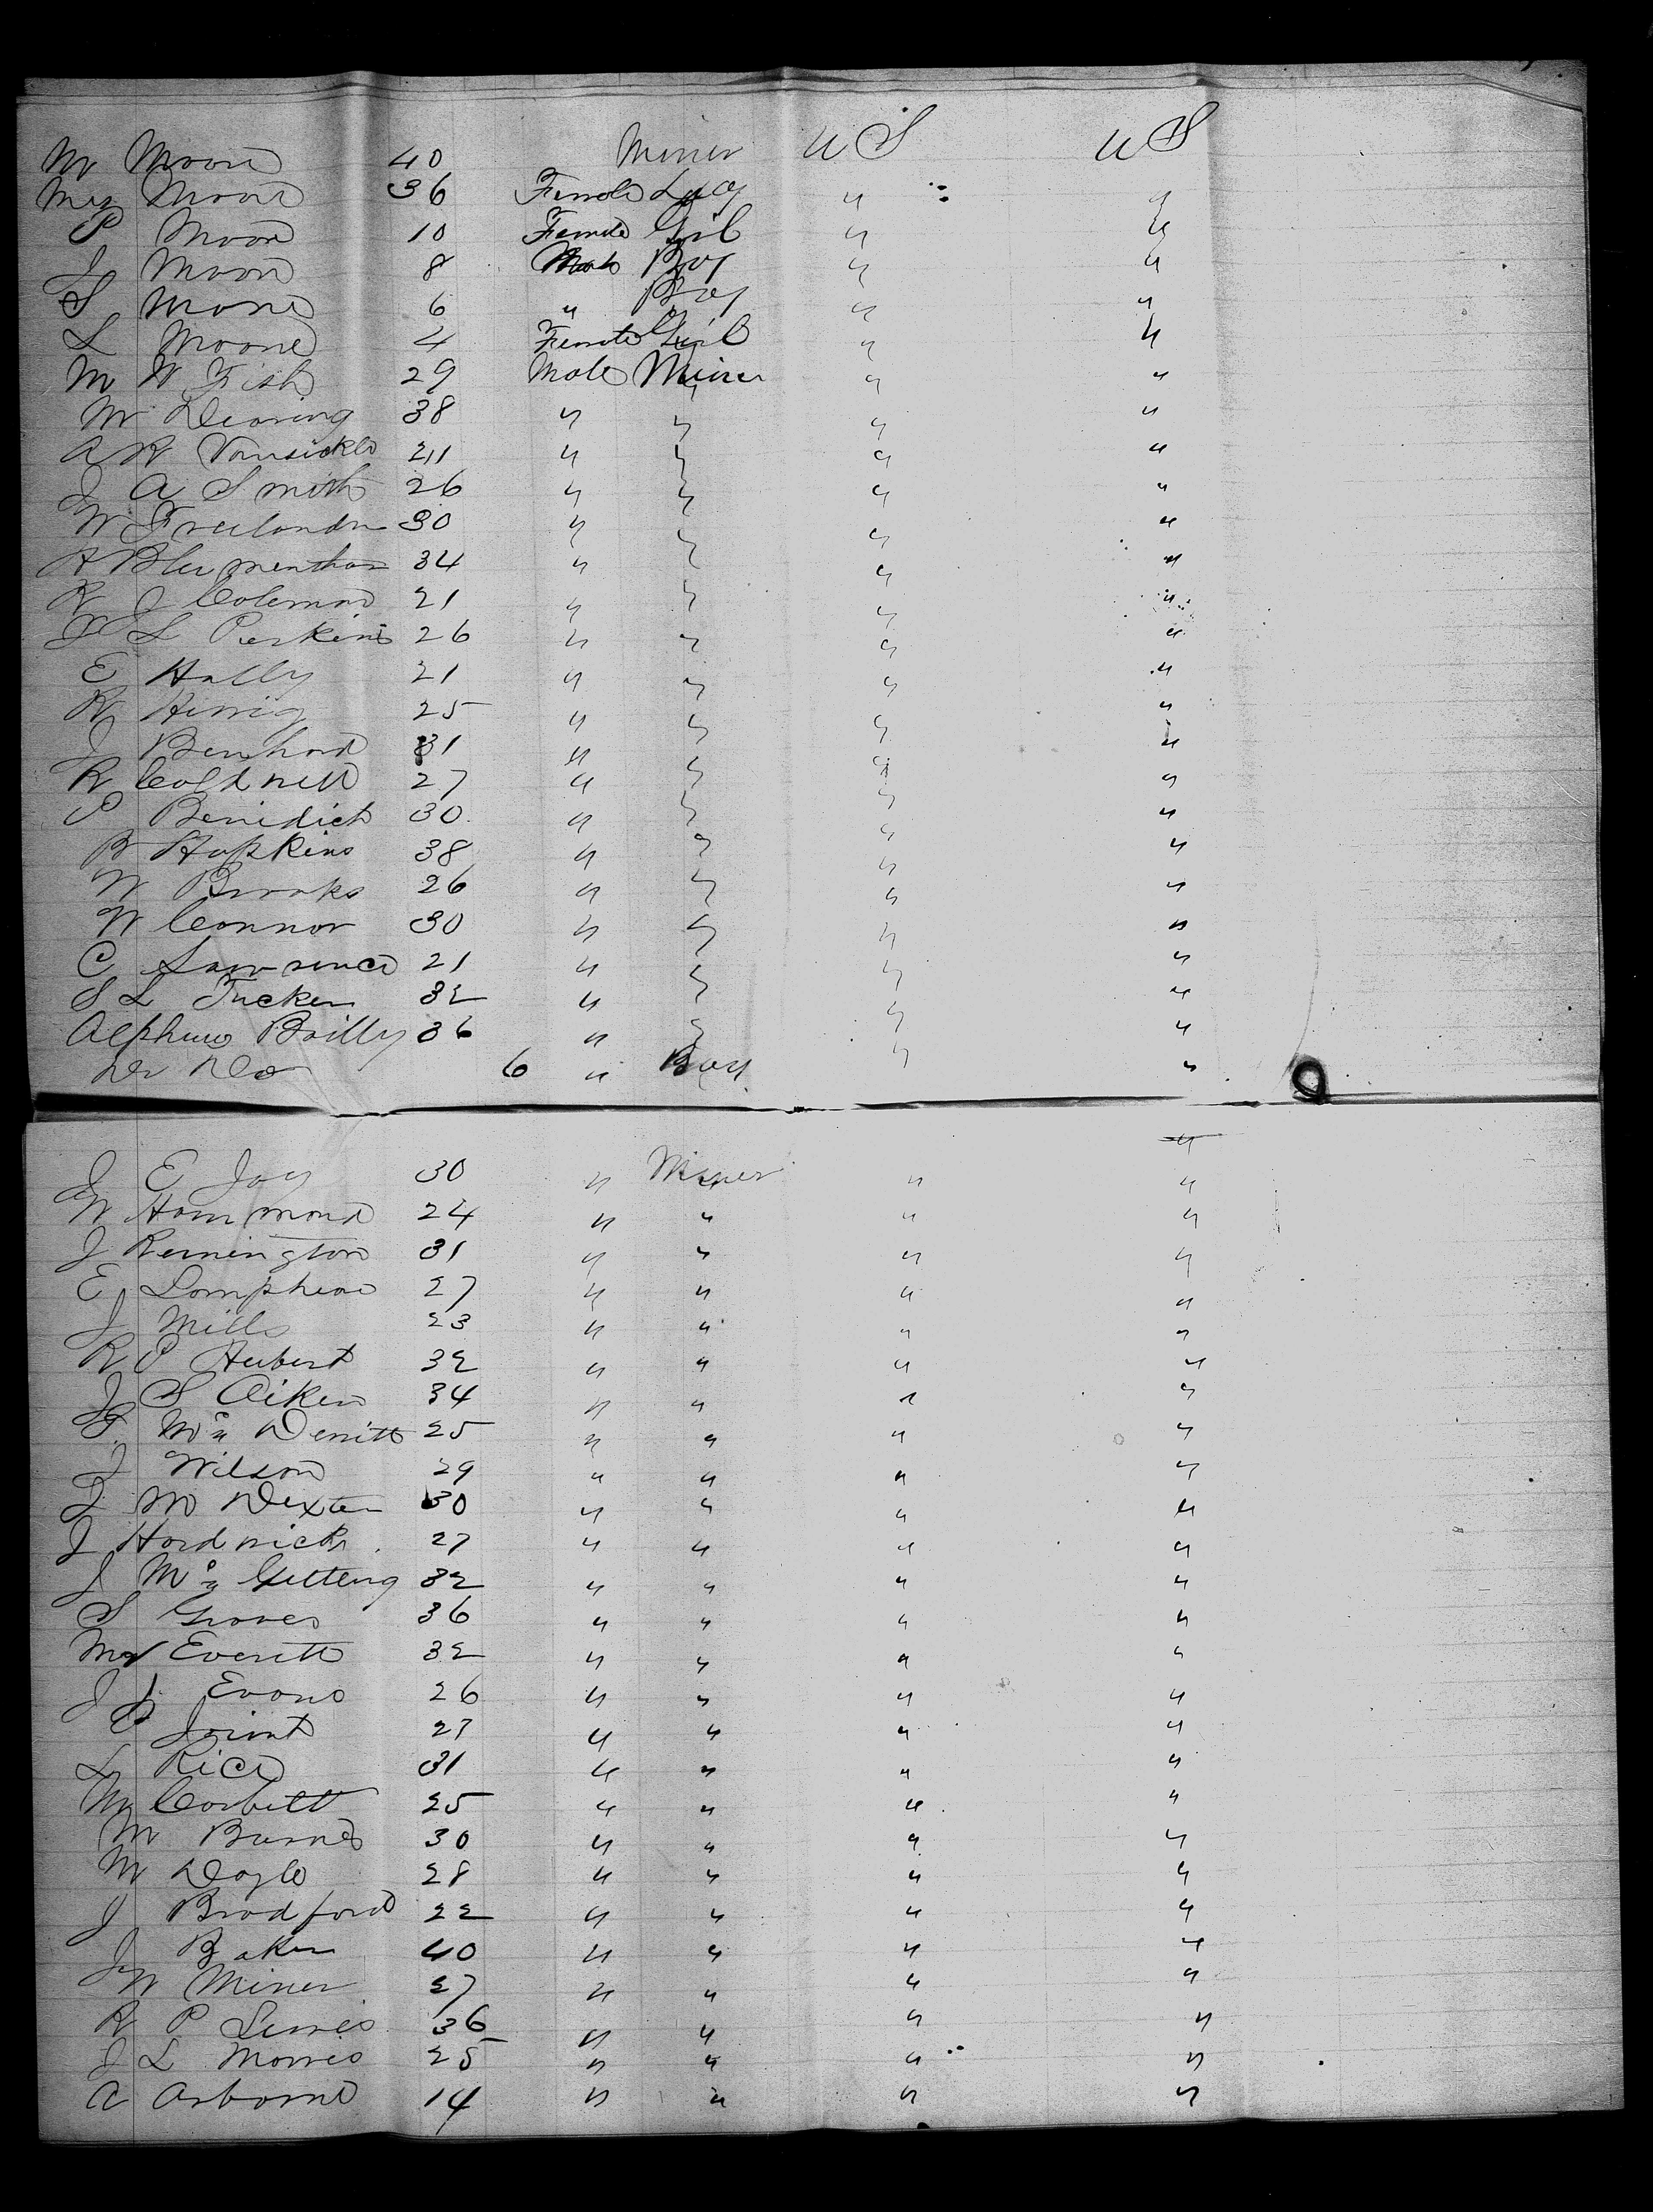 M Moore 40 Miner U S U S
Mrs Moore 36 Female Lady " "
P Moore 10 Female Girl " "
J Moore 8 Male Boy " "
S Moore 6 " Boy " "
L Moore 4 Female Girl " "
M W Fish 29 Male Miner " "
M Dearing 38 " " " "
A R Vansickle 21 " " " "
J A Smith 26 " " " "
W 30 " " " "
A 34 " " " "
R J Coleman 21 " " " "
L Perkins 26 " " " "
E Hally 21 " " " "
R 25 " " " "
J Benhard 31 " " " "
R Coldwell 27 " " " "
P Benidict 30 " " " "
B Hopkins 38 " " " "
W Brooks 26 " " " "
W Connor 30 " " " "
C Lawrence 21 " " " "
S L Tucker 32 " " " "
Alpheus Bailly 36 " " " "
Do 6 " Boy " "
"
J E Joy 30 " Miner " "
W Hammond 24 " " " "
J Remington 31 " " " "
E Lamphear 27 " " " "
J Mills 23 " " " "
R P Hubert 32 " " " "
J S Aiken 34 " " " "
F Mc Derritt 25 " " " "
J Wilson 29 " " " "
J M Dexter 30 " " " "
J Hardwick 27 " " " "
J Mc Gutteng 32 " " " "
S Graves 36 " " " "
Everett 32 " " " "
J J Evans 26 " " " "
P Joint 27 " " " "
L Rice 31 " " " "
M Corbett 25 " " " "
M Burns 30 " " " "
M Doyle 28 " " " "
J Bradford 22 " " " "
J Baker 40 " " " "
J W Miner 27 " " " "
R P Lewis 36 " " " "
J L Morris 25 " " " "
A Osborne 14 " " " "